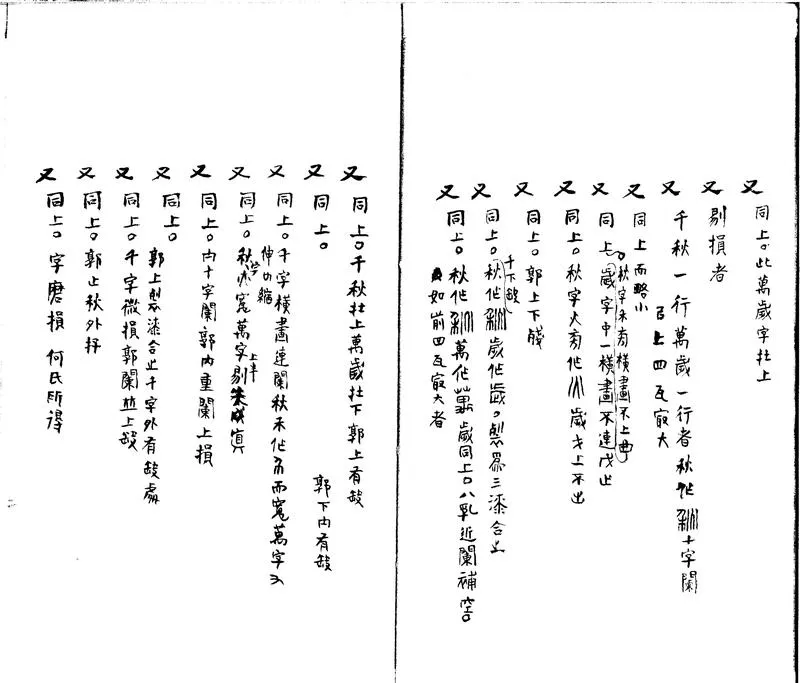 又 同上。此萬歲字在上
又 剔損者
又 千秋一行萬歲一行者秋作 十字闌
已上四瓦最大
又 同上而略小
。秋字禾旁橫畫不上曲
又 同上歲字中一橫畫不連戊止
又 同上。秋字火旁作 歲 上不出
又 同上。郭上下殘
千下缺
又 同上。秋作 歲作 。製為三漆合之
又 同上。秋作 萬作 歲同上。八乳近闌補空。
如前四瓦最大者
又 同上。千秋在上萬歲在下郭上有缺
又 同上。 郭下內有缺
又 同上。千字橫畫連闌秋禾作 而寬萬字又
伸如縮
又 同上。秋 寬萬字剔 成
上半
又 同上。內十字闌郭內重闌上損
又 同上。
郭上製漆合之千字外有缺處
又 同上。千字微損郭闌並上缺
又 同上。郭止秋外存
又 同上。字磨損 何氏所得